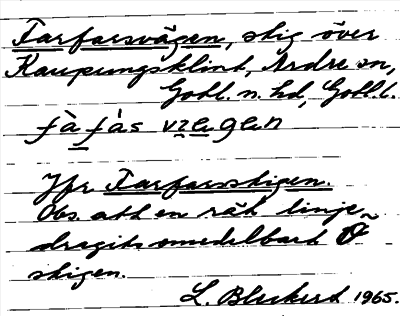 Farfarsvägen, stig över
Kaupungsklint, Ardre sn,
Gotl. n. hd, Gotl. l.
fà fàs vægen
Jfr Farfarsstigen.
Obs. att en rät linje
dragits omedelbart O
stigen.
L. Bleckert 1965.